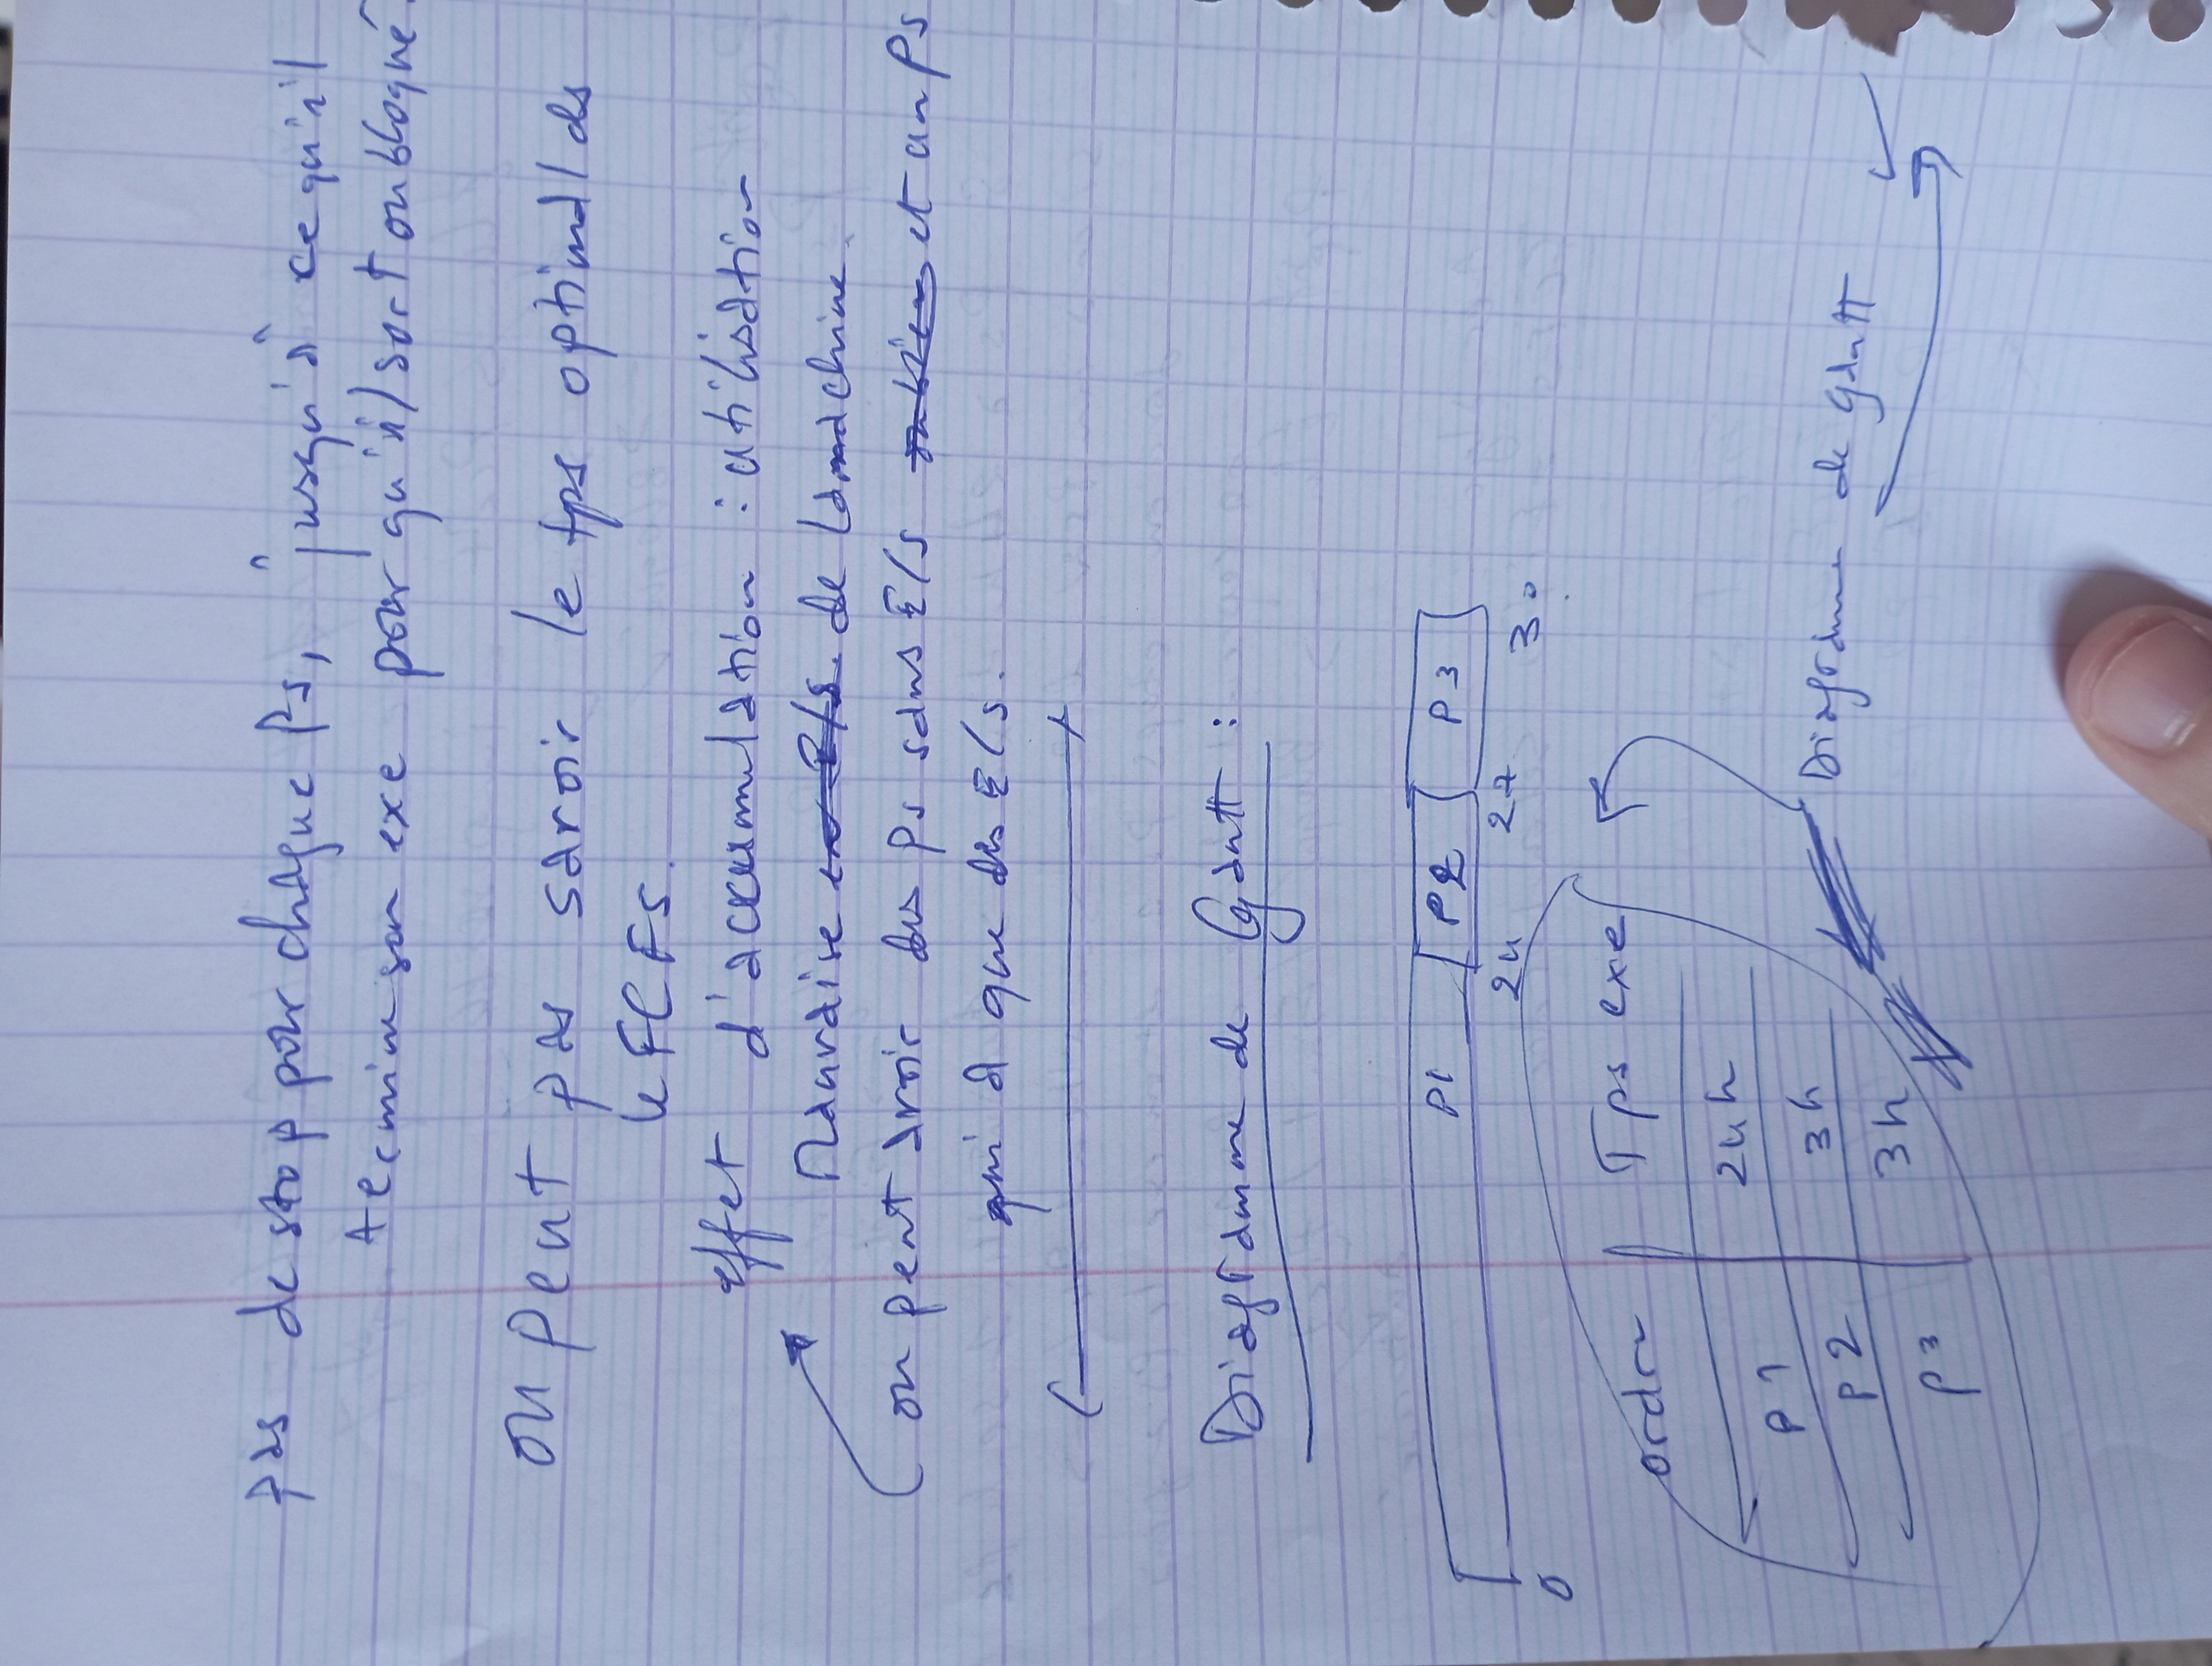 pas de stop pour chaque Ps, jusqu'à ce qu'il
termine son exe pour qu'il sort ou bloqué.
on peut pas savoir le tps optimal ds
le FCFS.
effet d'accumulation : utilisation
Mauvaise en E/S. de la machine.
on peut avoir des Ps sans E/S et un Ps
qui a que des E/s.
Diagramme de Gantt :
P1 P2 P3
0 24 27 30
ordre Tps exe
P1 24h
P2 3h
P3 3h
Diagramme de Gantt